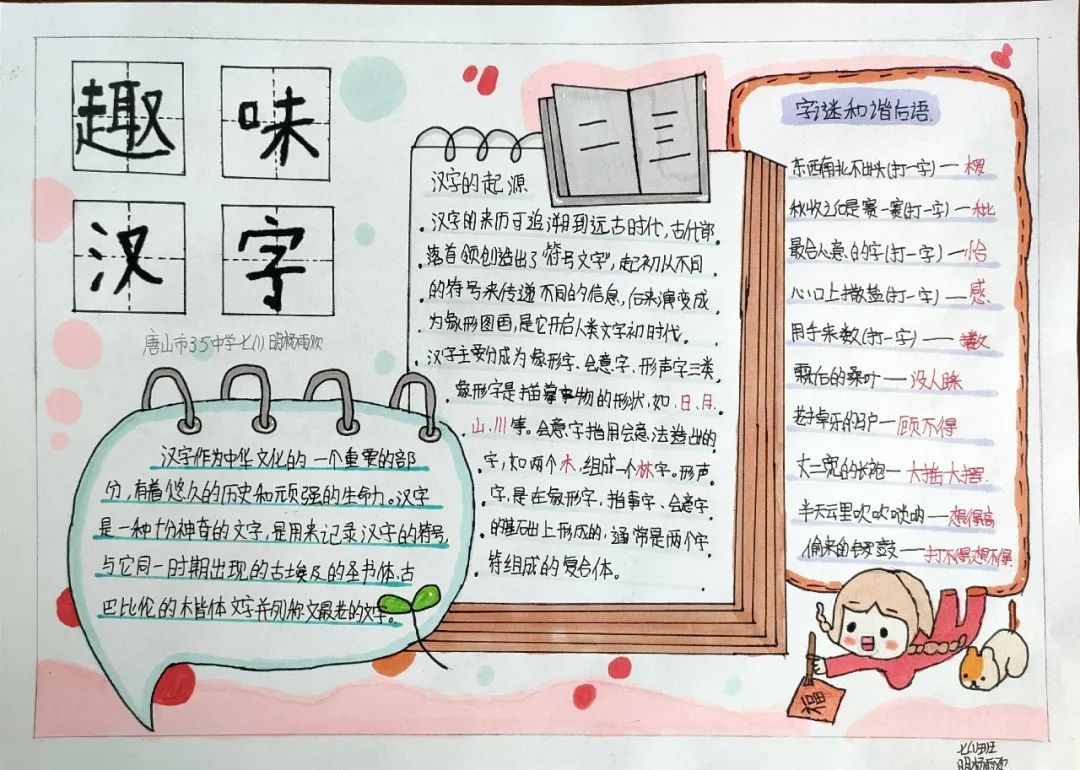 趣 味
汉 字
唐山市35中学
汉字作为中华文化的一个重要的部
分,有着悠久的历史和顽强的生命力。汉字
是一种十分神奇的文字,是用来记录汉字的符号,
与它同一时期出现的古埃及的圣书体、古
巴比伦的木皆体文字并列称文最老的文字。
二 三
汉字的起源
汉字的来历可追溯到远古时代,古代部
落首领创造出了"符号文字",起初从不同
的符号来传递不同的信息,后来演变成
为象形图画,是它开启人类文字初时代。
汉字主要分成为象形字、会意字、形声字三类,
象形字是描摹事物的形状,如日、月、
山、川等。会意字指用会意法造出的
字,如两个木,组成一个林字。形声
字,是在象形字、指事字、会意字
的基础上形成的,通常是两个字
符组成的复合体。
字谜和谐后语
东西南北不出头(打一字)—
秋收之后是赛一赛(打一字)—
最合人意的字(打一字)—恰
心口上撒盐(打一字)—感
用手来数(打一字)—擞
霜后的桑叶—没人睬
老卓乐的马户—顾不得
丈二宽的长袍—大摇大摆
半天云里吹吹唢呐—想得高
偷来的锣鼓—打不得想不得
福